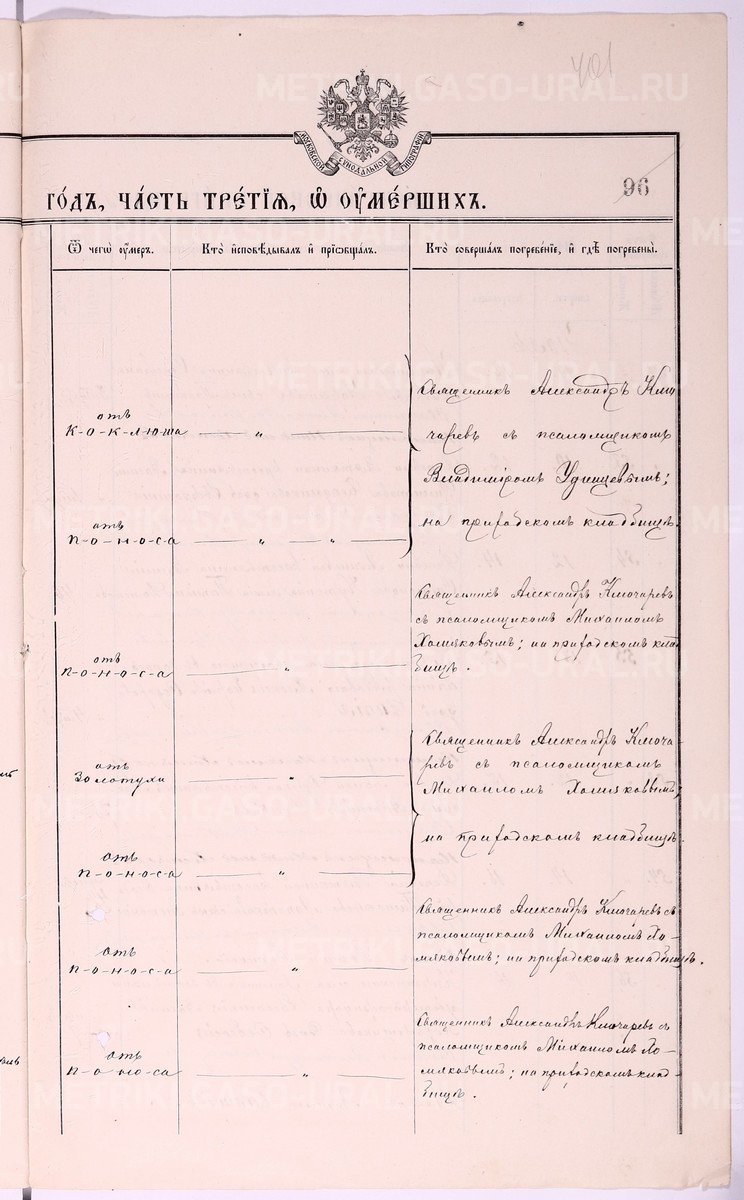 401
METRIKI.GASO-URAL.RU
МОСКОВСКОЙ СѴНОДАЛЬНОЙ ТИПОГРАФІИ
96
ГОДЪ, ЧАСТЬ ТРЕТІЯ, Ѽ ОУМЕРШИХЪ.
Ѿ чегѡ оумеръ.
Кто исповѣдывалъ и пріобщалъ.
Кто совершалъ погребеніе, и гдѣ погребены.
отъ
К-о-к-люша „
Священникъ Александръ Клю
чаревъ съ псаломщикомъ
Владиміромъ Удинцевымъ;
на приходскомъ кладбищѣ.
отъ
п-о-н-о-с-а „ „
Священникъ Александръ Ключаревъ
съ псаломщикомъ Михаиломъ
Хомяковымъ; на приходскомъ клад
бищѣ.
отъ
п-о-н-о-с-а „
Священникъ Александръ Ключа-
ревъ съ псаломщикомъ
Михаиломъ Хомяковымъ;
на приходскомъ кладбищѣ.
отъ
Золотухи „
отъ
п-о-н-о-са „
Священникъ Александръ Ключаревъ съ
псаломщикомъ Михаиломъ Хо-
мяковымъ; на приходскомъ кладбищѣ.
отъ
п-о-н-о-с-а „
Священникъ Александръ Ключаревъ съ
псаломщикомъ Михаиломъ Хо-
мяковымъ; на приходскомъ клад-
бищѣ.
отъ
п-о-но-са „